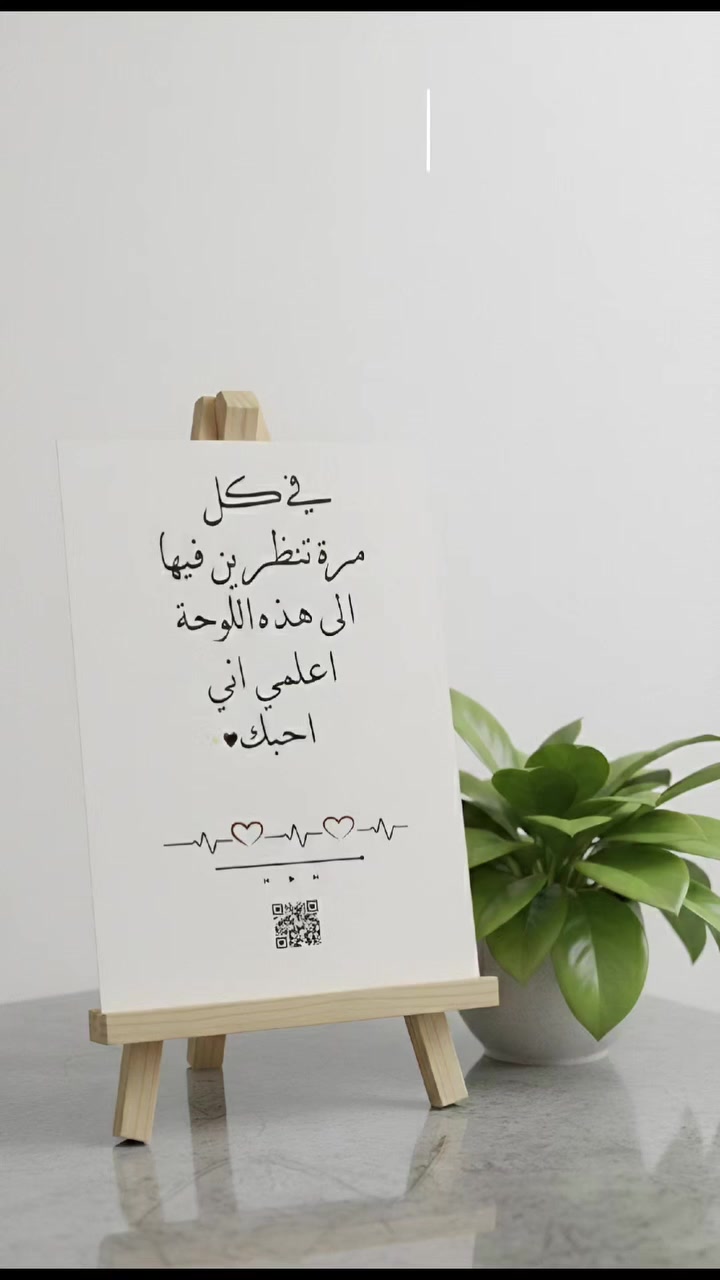 في كل
مرة تنظرين فيها
الى هذه اللوحة
اعلمي اني
احبك♥